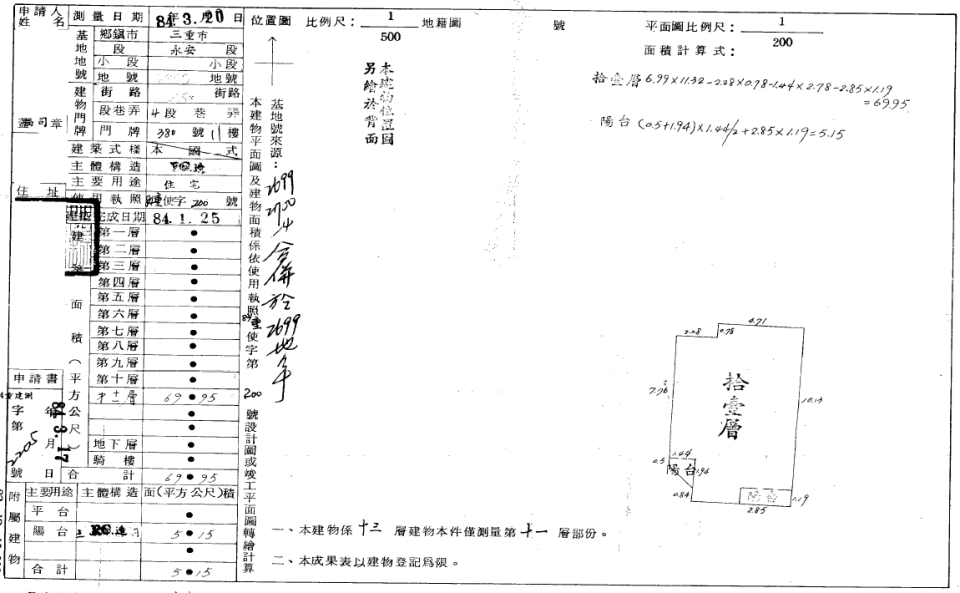 申請人
姓名
測量日期 84年3月20日
基地地號
鄉鎮市 三重市
段 永安 段
小段 小段
地號 地號
建物門牌
街路 街路
段巷弄 4段 巷 弄
門牌 380 號 11 樓
建築式樣 本國式
主體構造
主要用途 住宅
使用執照 重使字 200 號
建築完成日期 84.1.25
住址
建築面積(平方公尺)
第一層
第二層
第三層
第四層
第五層
第六層
第七層
第八層
第九層
第十層
第十一層 69.95
地下層
騎樓
合計 69.95
申請書
84.3.17
字第 2205 號
年 月 日
附屬建物
主要用途 主體構造 面(平方公尺)積
平台
陽台 5.15
合計 5.15
位置圖 比例尺: 1/500 地籍圖 號 平面圖比例尺: 1/200
面積計算式:
拾壹層 6.99×11.32-2.28×0.78-1.44×2.78-2.85×1.19
=69.95
陽台 (0.5+1.94)×1.44/2+2.85×1.19=5.15
本建物位置圖
另繪於背面
基地號來源:2699 2700 合併於2699地號
本建物平面圖及建物面積係依使用執照 84重使字第 200 號設計圖或竣工平面圖轉繪計算
4.71
2.28
0.78
7.76
10.13
拾壹層
1.44
0.5
陽台
1.94
0.84
陽台
1.19
2.85
一、本建物係十三層建物本件僅測量第十一層部份。
二、本成果表以建物登記為限。